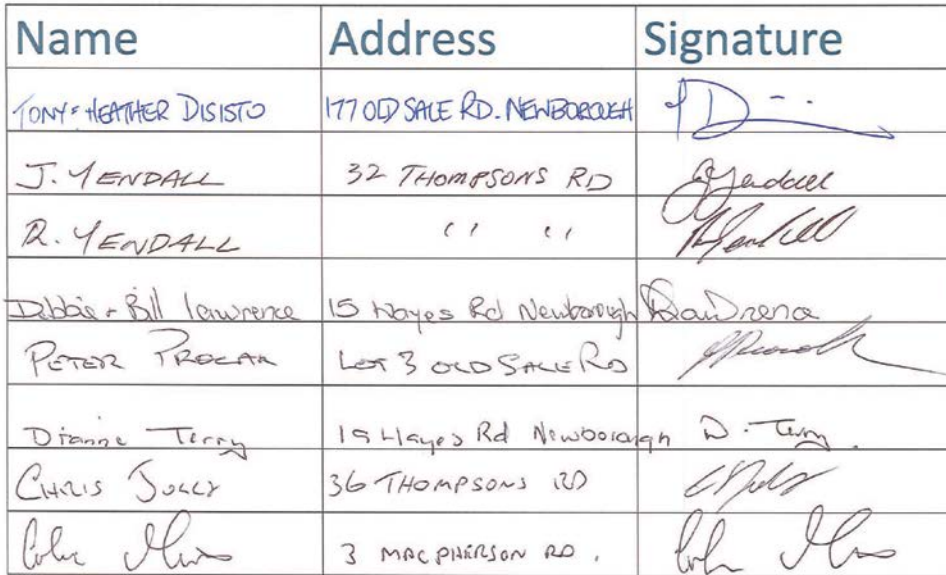 Name Address Signature
TONY & HEATHER DISISTO 177 OLD SALE RD. NEWBOROUGH
J. YENDALL 32 THOMPSONS RD J Yendall
R. YENDALL " " R Yendall
Debbie & Bill lawrence 15 Hayes Rd Newborough D Lawrence
PETER PROCAR LOT 3 OLD SALE RD
Dianne Terry 19 Hayes Rd Newborough D. Terry.
CHRIS JOLLY 36 THOMPSONS RD
3 MACPHERSON RD.